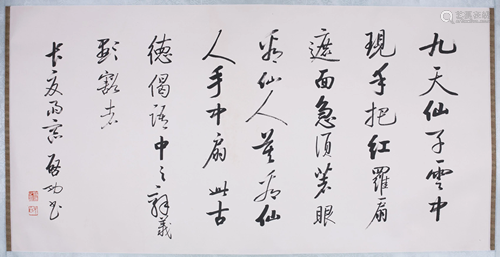 九天仙子云中
現手把紅羅扇
遮面急須著眼
看仙人莫看仙
人手中扇 此古
德偈語中之釋義
長夏雨窗 啟功書